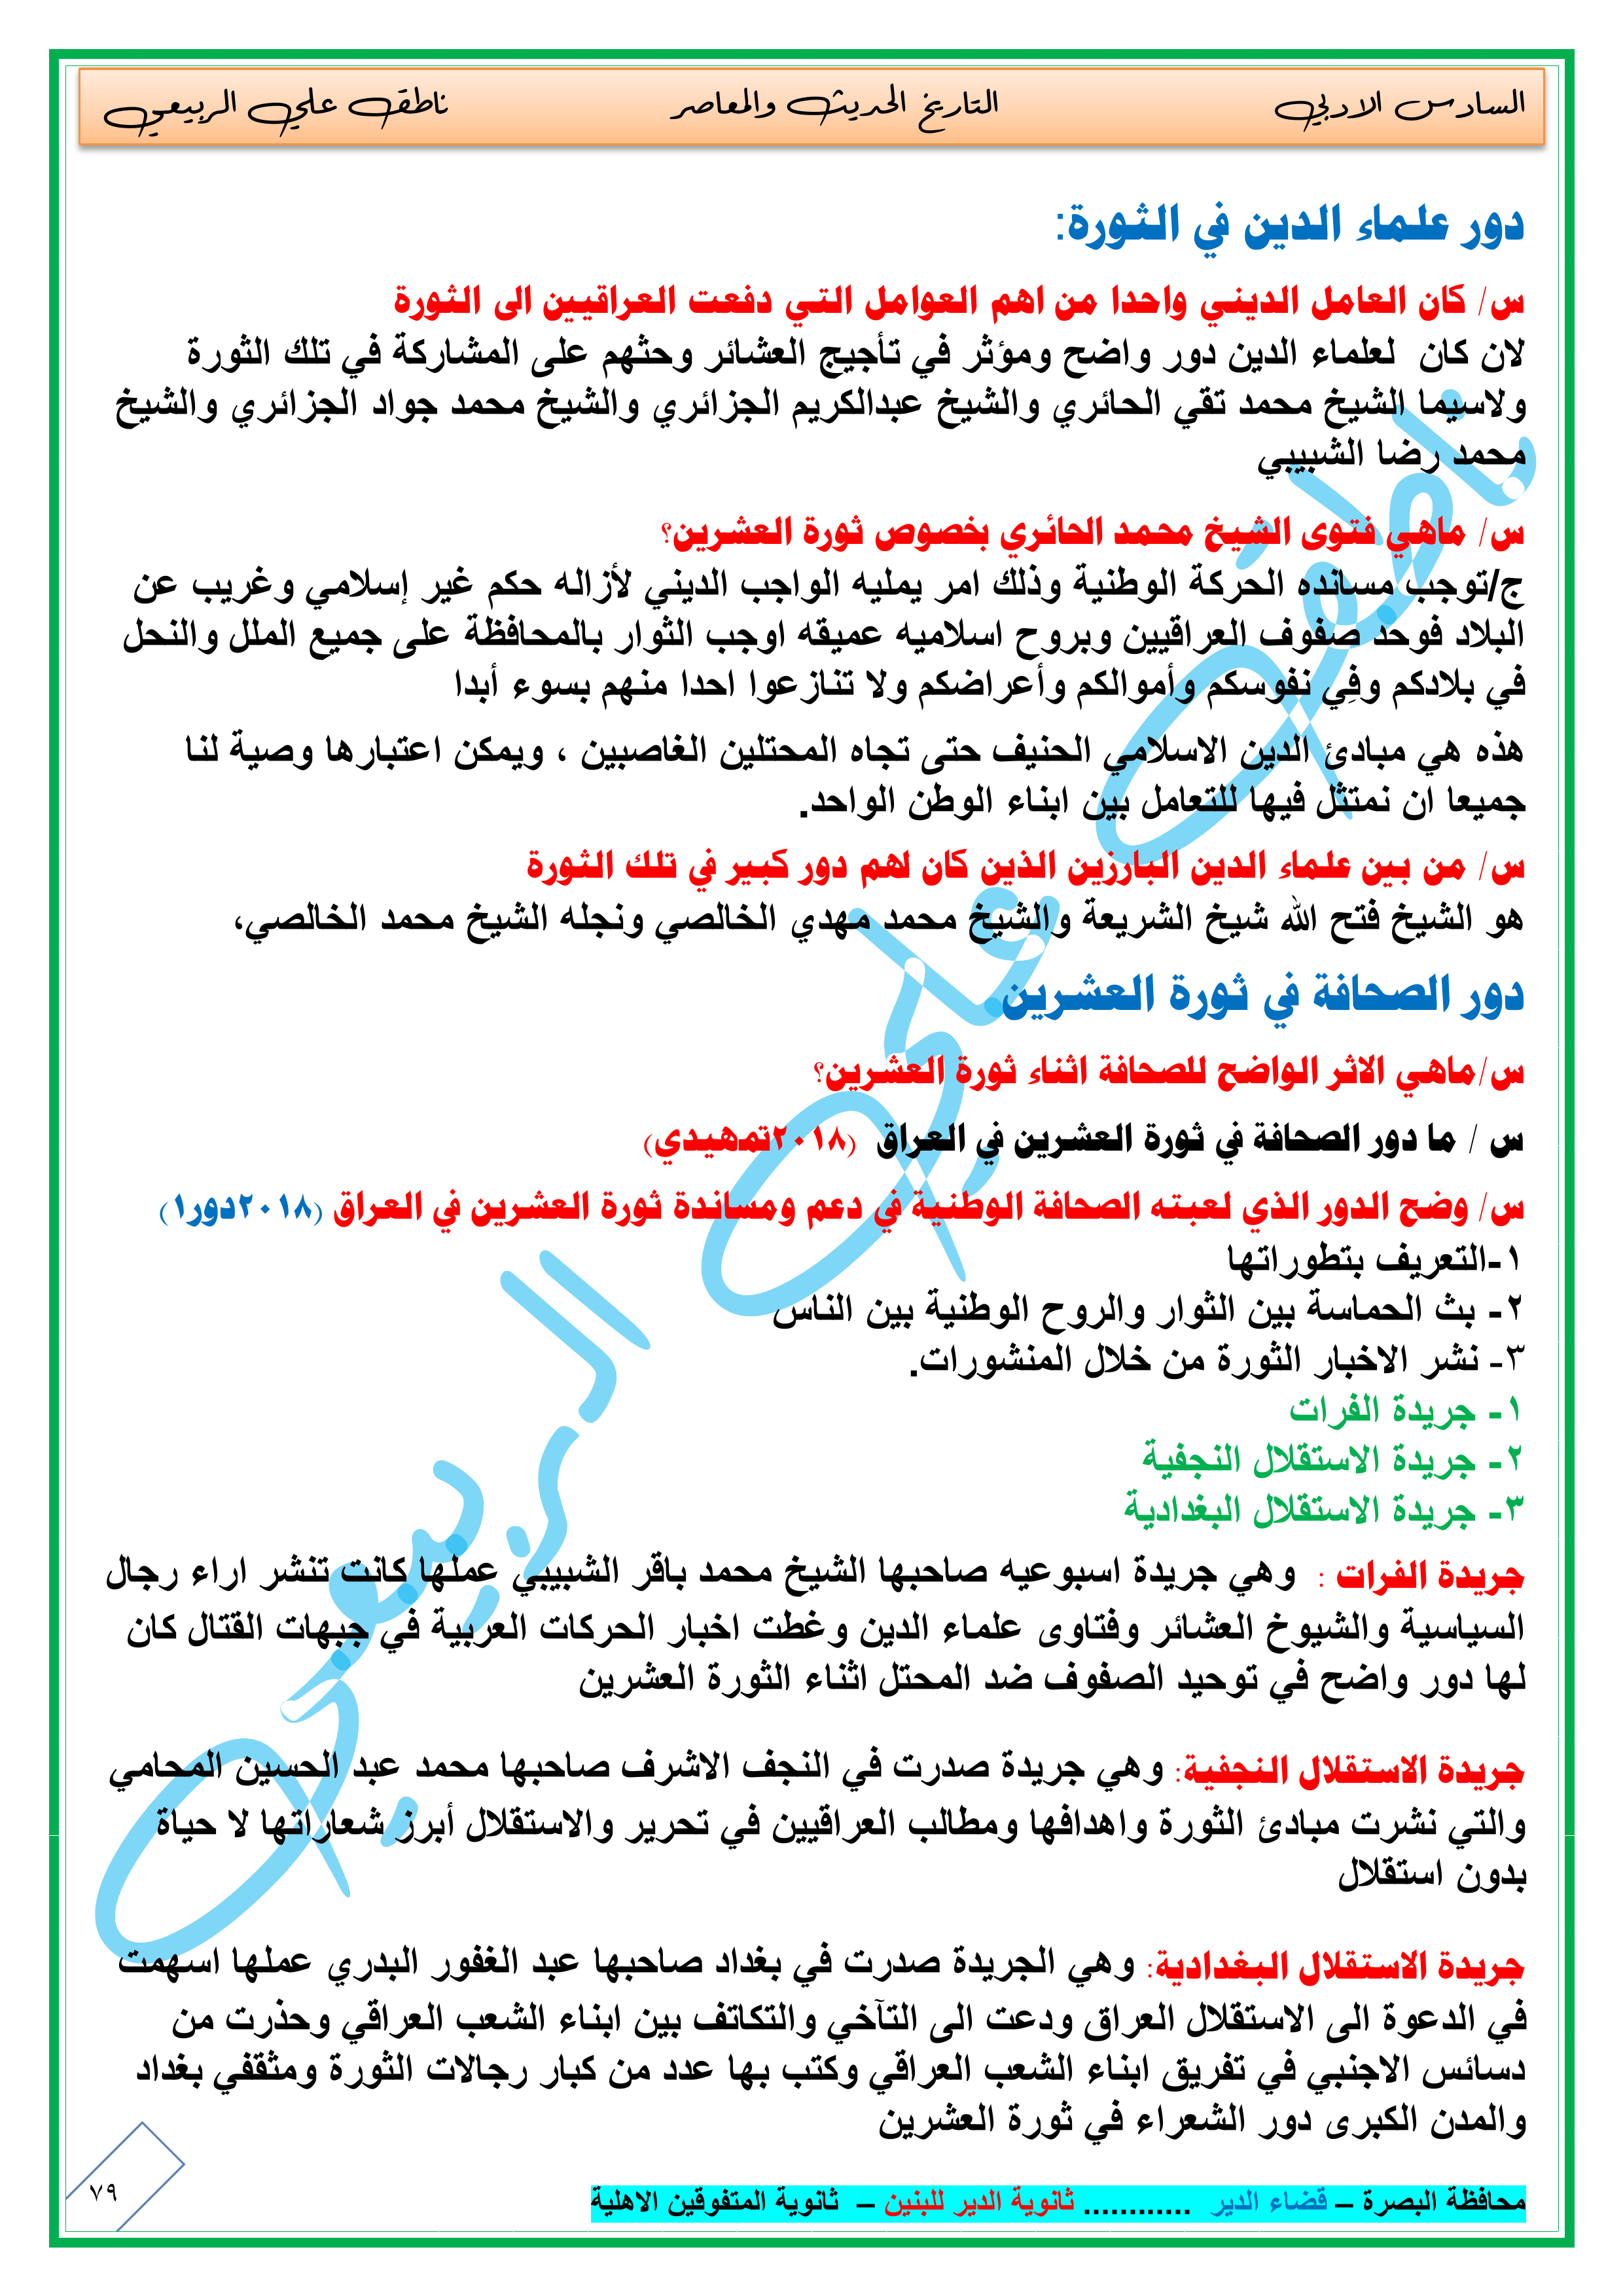 السادس الادبي التاريخ الحديث والمعاصر ناطق علي الربيعي
دور علماء الدين في الثورة:
س/ كان العامل الديني واحدا من اهم العوامل التي دفعت العراقيين الى الثورة
لان كان لعلماء الدين دور واضح ومؤثر في تأجيج العشائر وحثهم على المشاركة في تلك الثورة
ولاسيما الشيخ محمد تقي الحائري والشيخ عبدالكريم الجزائري والشيخ محمد جواد الجزائري والشيخ
محمد رضا الشبيبي
س/ ماهي فتوى الشيخ محمد الحائري بخصوص ثورة العشرين؟
ج/توجب مسانده الحركة الوطنية وذلك امر يمليه الواجب الديني لأزاله حكم غير إسلامي وغريب عن
البلاد فوحد صفوف العراقيين وبروح اسلاميه عميقه اوجب الثوار بالمحافظة على جميع الملل والنحل
في بلادكم وفِي نفوسكم وأموالكم وأعراضكم ولا تنازعوا احدا منهم بسوء أبدا
هذه هي مبادئ الدين الاسلامي الحنيف حتى تجاه المحتلين الغاصبين ، ويمكن اعتبارها وصية لنا
جميعا ان نمتثل فيها للتعامل بين ابناء الوطن الواحد.
س/ من بين علماء الدين البارزين الذين كان لهم دور كبير في تلك الثورة
هو الشيخ فتح الله شيخ الشريعة والشيخ محمد مهدي الخالصي ونجله الشيخ محمد الخالصي،
دور الصحافة في ثورة العشرين
س/ماهي الاثر الواضح للصحافة اثناء ثورة العشرين؟
س / ما دور الصحافة في ثورة العشرين في العراق (٢٠١٨تمهيدي)
س/ وضح الدور الذي لعبته الصحافة الوطنية في دعم ومساندة ثورة العشرين في العراق (٢٠١٨دور١)
١-التعريف بتطوراتها
٢- بث الحماسة بين الثوار والروح الوطنية بين الناس
٣- نشر الاخبار الثورة من خلال المنشورات.
١- جريدة الفرات
٢- جريدة الاستقلال النجفية
٣- جريدة الاستقلال البغدادية
جريدة الفرات : وهي جريدة اسبوعيه صاحبها الشيخ محمد باقر الشبيبي عملها كانت تنشر اراء رجال
السياسية والشيوخ العشائر وفتاوى علماء الدين وغطت اخبار الحركات العربية في جبهات القتال كان
لها دور واضح في توحيد الصفوف ضد المحتل اثناء الثورة العشرين
جريدة الاستقلال النجفية: وهي جريدة صدرت في النجف الاشرف صاحبها محمد عبد الحسين المحامي
والتي نشرت مبادئ الثورة واهدافها ومطالب العراقيين في تحرير والاستقلال أبرز شعاراتها لا حياة
بدون استقلال
جريدة الاستقلال البغدادية: وهي الجريدة صدرت في بغداد صاحبها عبد الغفور البدري عملها اسهمت
في الدعوة الى الاستقلال العراق ودعت الى التآخي والتكاتف بين ابناء الشعب العراقي وحذرت من
دسائس الاجنبي في تفريق ابناء الشعب العراقي وكتب بها عدد من كبار رجالات الثورة ومثقفي بغداد
والمدن الكبرى دور الشعراء في ثورة العشرين
محافظة البصرة – قضاء الدير ............ ثانوية الدير للبنين – ثانوية المتفوقين الاهلية
٧٩
ناطق علي الربيعي